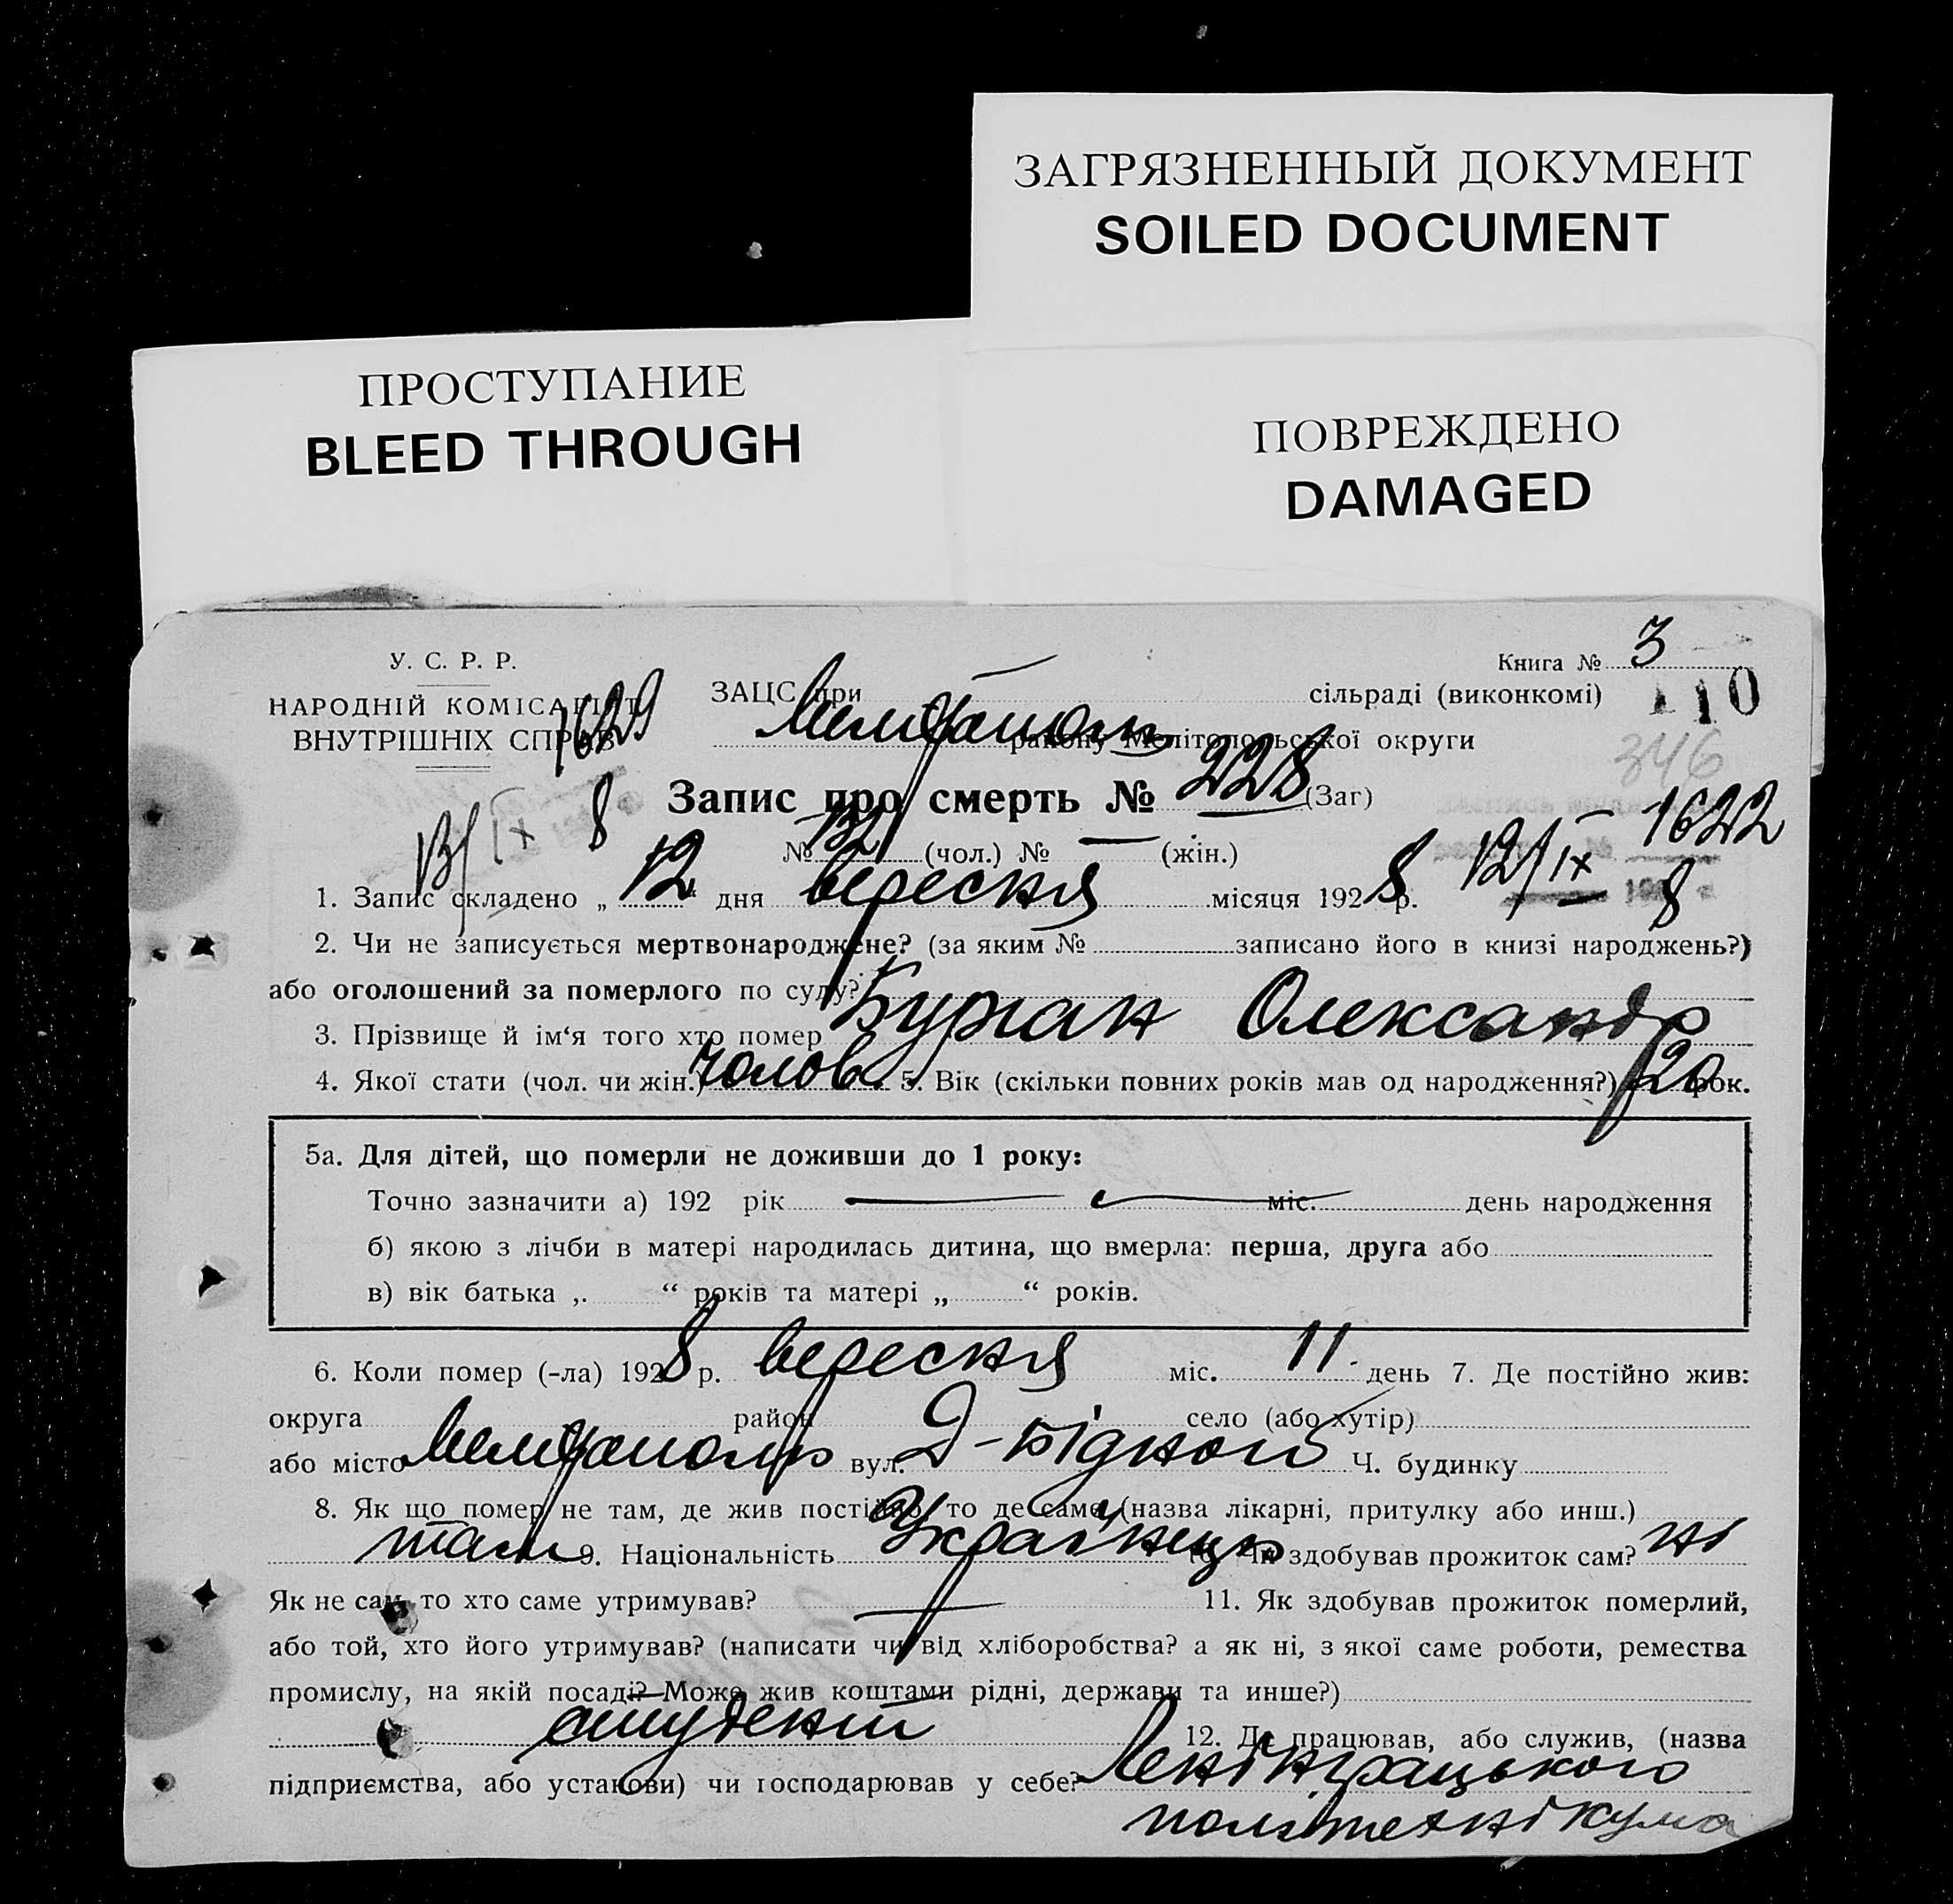 ЗАГРЯЗНЕННЫЙ ДОКУМЕНТ
SOILED DOCUMENT
ПРОСТУПАНИЕ
BLEED THROUGH
ПОВРЕЖДЕНО
DAMAGED
У. С. Р. Р.
НАРОДНІЙ КОМІСАРІЯТ
ВНУТРІШНІХ СПРАВ
1629
13/IX 8
Книга № 3
110
346
ЗАЦС при — сільраді (виконкомі)
Мелітополь району Мелітопольської округи
Запис про смерть № 228 (Заг)
№ 132 (чол.) № — (жін.)
1622
12/IX 1928
1. Запис складено „ 12 “ дня вересня місяця 1928 р.
2. Чи не записується мертвонароджене? (за яким № записано його в книзі народжень?)
або оголошений за померлого по суду?
3. Прізвище й ім‘я того хто помер Олександр
4. Якої стати (чол. чи жін.) чолов. 5. Вік (скільки повних років мав од народження?) 20 рок.
5а. Для дітей, що померли не доживши до 1 року:
Точно зазначити а) 192 рік — міс. день народження
б) якою з лічби в матері народилась дитина, що вмерла: перша, друга або
в) вік батька „ “ років та матері „ “ років.
6. Коли помер (-ла) 1928 р. вересня міс. 11 день 7. Де постійно жив:
округа район село (або хутір)
або місто Мелітополь вул. Д-Бідного Ч. будинку
8. Як що помер не там, де жив постійно, то де саме (назва лікарні, притулку або инш.)
там 9. Національність Українець 10. Чи здобував прожиток сам? ні
Як не сам, то хто саме утримував? — 11. Як здобував прожиток померлий,
або той, хто його утримував? (написати чи від хліборобства? а як ні, з якої саме роботи, ремества
промислу, на якій посаді? Може жив коштами рідні, держави та инше?)
студент 12. Де працював, або служив, (назва
підприємства, або установи) чи господарював у себе? Ленінграцького
політехнікума